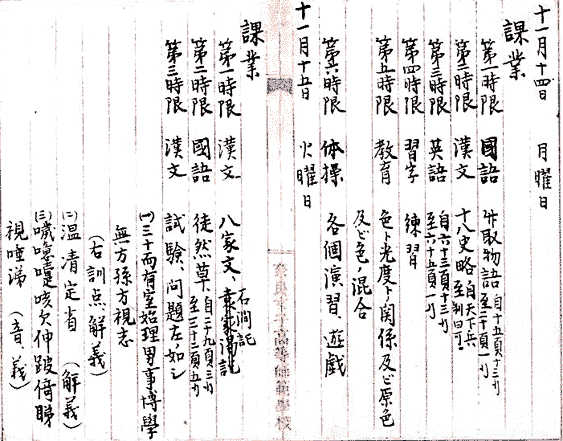 十一月十四日 月曜日
課業
第一時限 國語 竹取物語 自十五頁十三行 至二十頁一行
第二時限 漢文 十八史略 自天下兵 至刺曰可
第三時限 英語 自六十三頁十三行 至六十五頁一行
第四時限 習字 練習
第五時限 教育 色ト光度トノ関係及ビ原色
及ビ色ノ混合
第六時限 体操 各個演習、遊戯
十一月十五日 火曜日
課業
第一時限 漢文 八家文、袁家渇記 石澗記
第二時限 國語 徒然草、自二十九頁三行 至三十三頁五行
第三時限 漢文 試験、問題左ノ如シ
(一)三十而有室始理男事博學
無方孫方視志
(右訓点解義)
(二)温凊定省 (解義)
(三)噦噫嚏咳欠伸跛倚睇
視唾洟 (音、義)
奈良女子高等師範學校